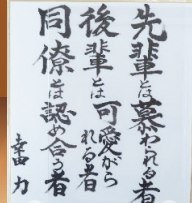 先輩とは慕われる者
後輩とは可愛がられる者
同僚とは認め合う者
幸田 力